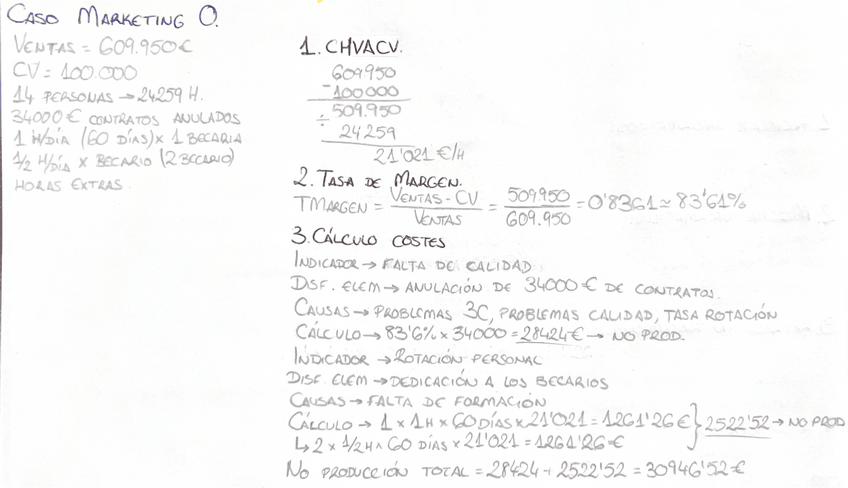 CASO MARKETING O.
VENTAS = 609.950€
CV = 100.000
14 PERSONAS → 24259 H.
34000€ CONTRATOS ANULADOS
1 H/DÍA (60 DÍAS) × 1 BECARIA
1/2 H/DÍA × BECARIO (2 BECARIO)
HORAS EXTRAS
1. CHVACV.
609950
- 100000
509.950
÷ 24259
21'021 €/H
2. TASA DE MARGEN.
TMARGEN = VENTAS - CV / VENTAS = 509.950 / 609.950 = 0'8361 ≃ 83'61%
3. CÁLCULO COSTES
INDICADOR → FALTA DE CALIDAD
DISF. ELEM → ANULACIÓN DE 34000€ DE CONTRATOS.
CAUSAS → PROBLEMAS 3C, PROBLEMAS CALIDAD, TASA ROTACIÓN
CÁLCULO → 83'6% × 34000 = 28424€ → NO PROD.
INDICADOR → ROTACIÓN PERSONAL
DISF. ELEM → DEDICACIÓN A LOS BECARIOS
CAUSAS → FALTA DE FORMACIÓN
CÁLCULO → 1 × 1H × 60 DÍAS × 21'021 = 1261'26 € } 2522'52 → NO PROD
↳ 2 × 1/2H × 60 DÍAS × 21'021 = 1261'26 €
NO PRODUCCIÓN TOTAL = 28424 + 2522'52 = 30946'52 €